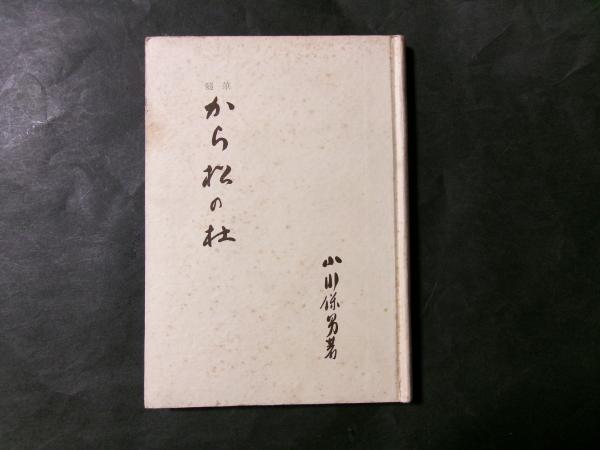 随筆
から松の杜
小川保男著